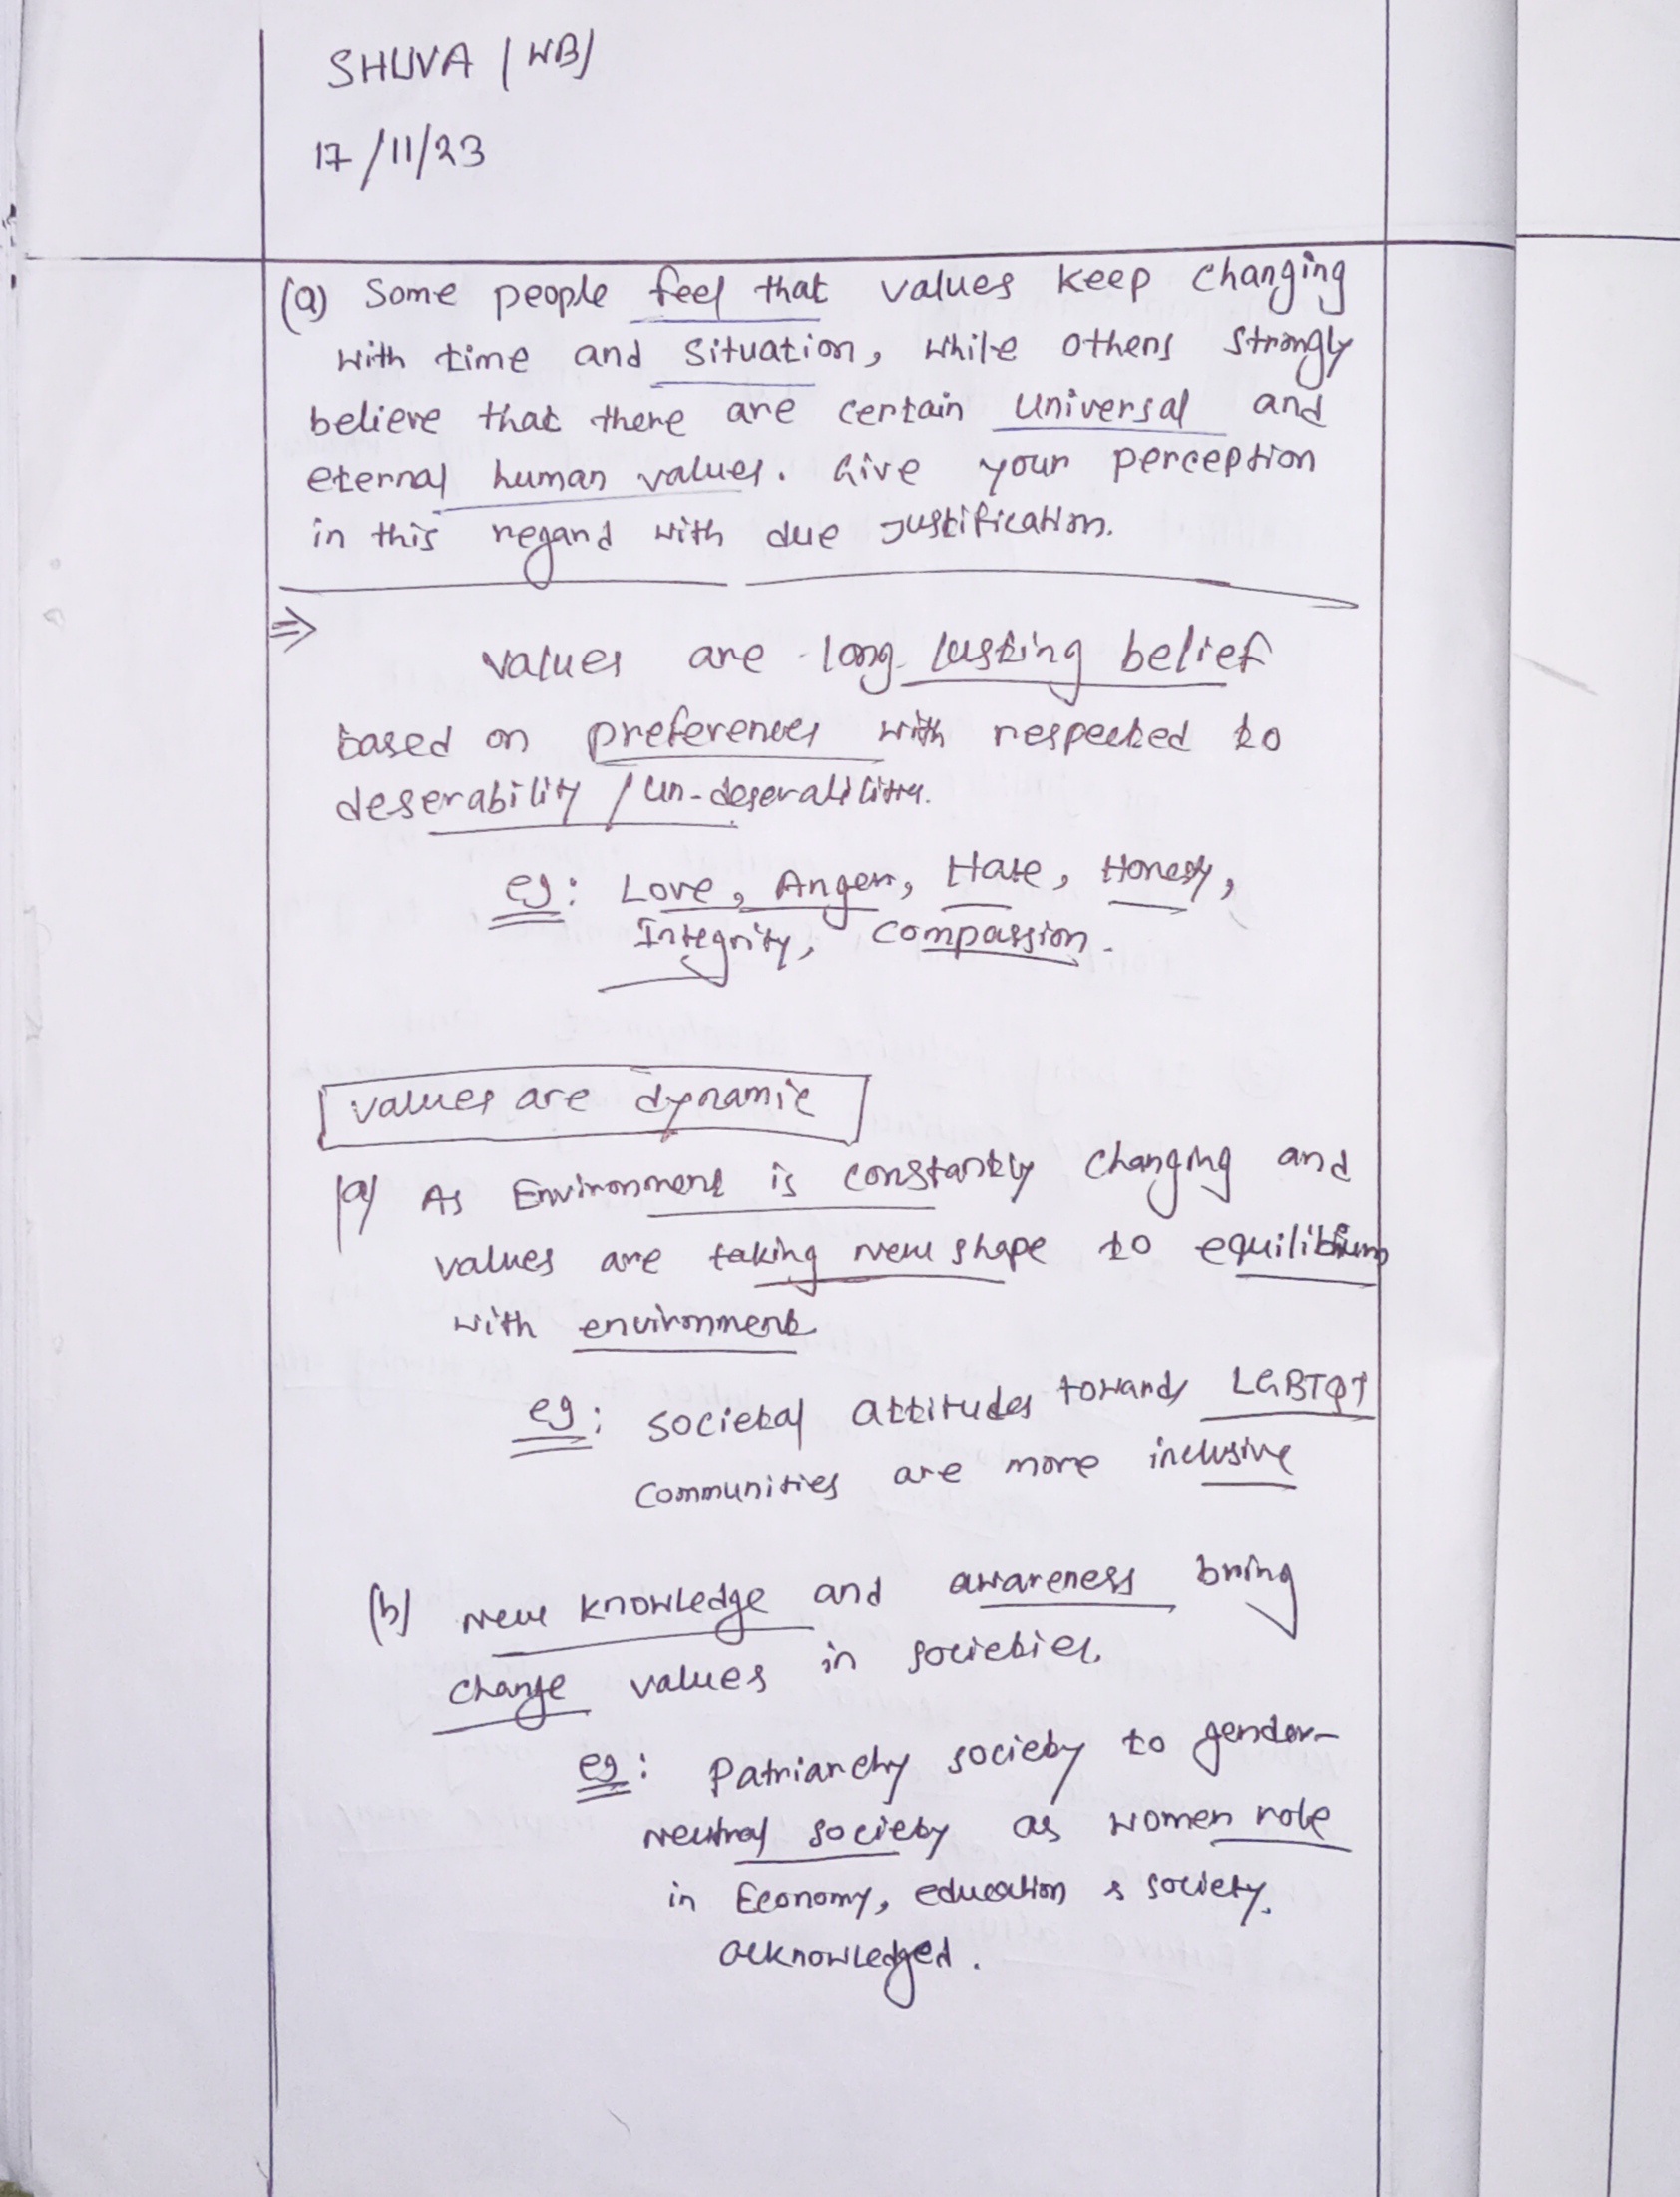 SHUVA (WB)
17/11/23
(a) Some people feel that values keep changing
with time and situation, while others strongly
believe that there are certain universal and
eternal human values. Give your perception
in this regard with due justification.
⇒
values are long lasting belief
based on preferences with respected to
deserability / un-deserability.
eg: Love, Anger, Hate, Honesty,
Integrity, Compassion.
values are dynamic
(a) As Environment is constantly changing and
values are taking new shape to equilibrium
with environment
eg: societal attitudes towards LGBTQ+
communities are more inclusive
(b) new knowledge and awareness bring
change values in societies.
eg: Patriarchy society to gender-
neutral society as women role
in Economy, education & society
acknowledged.